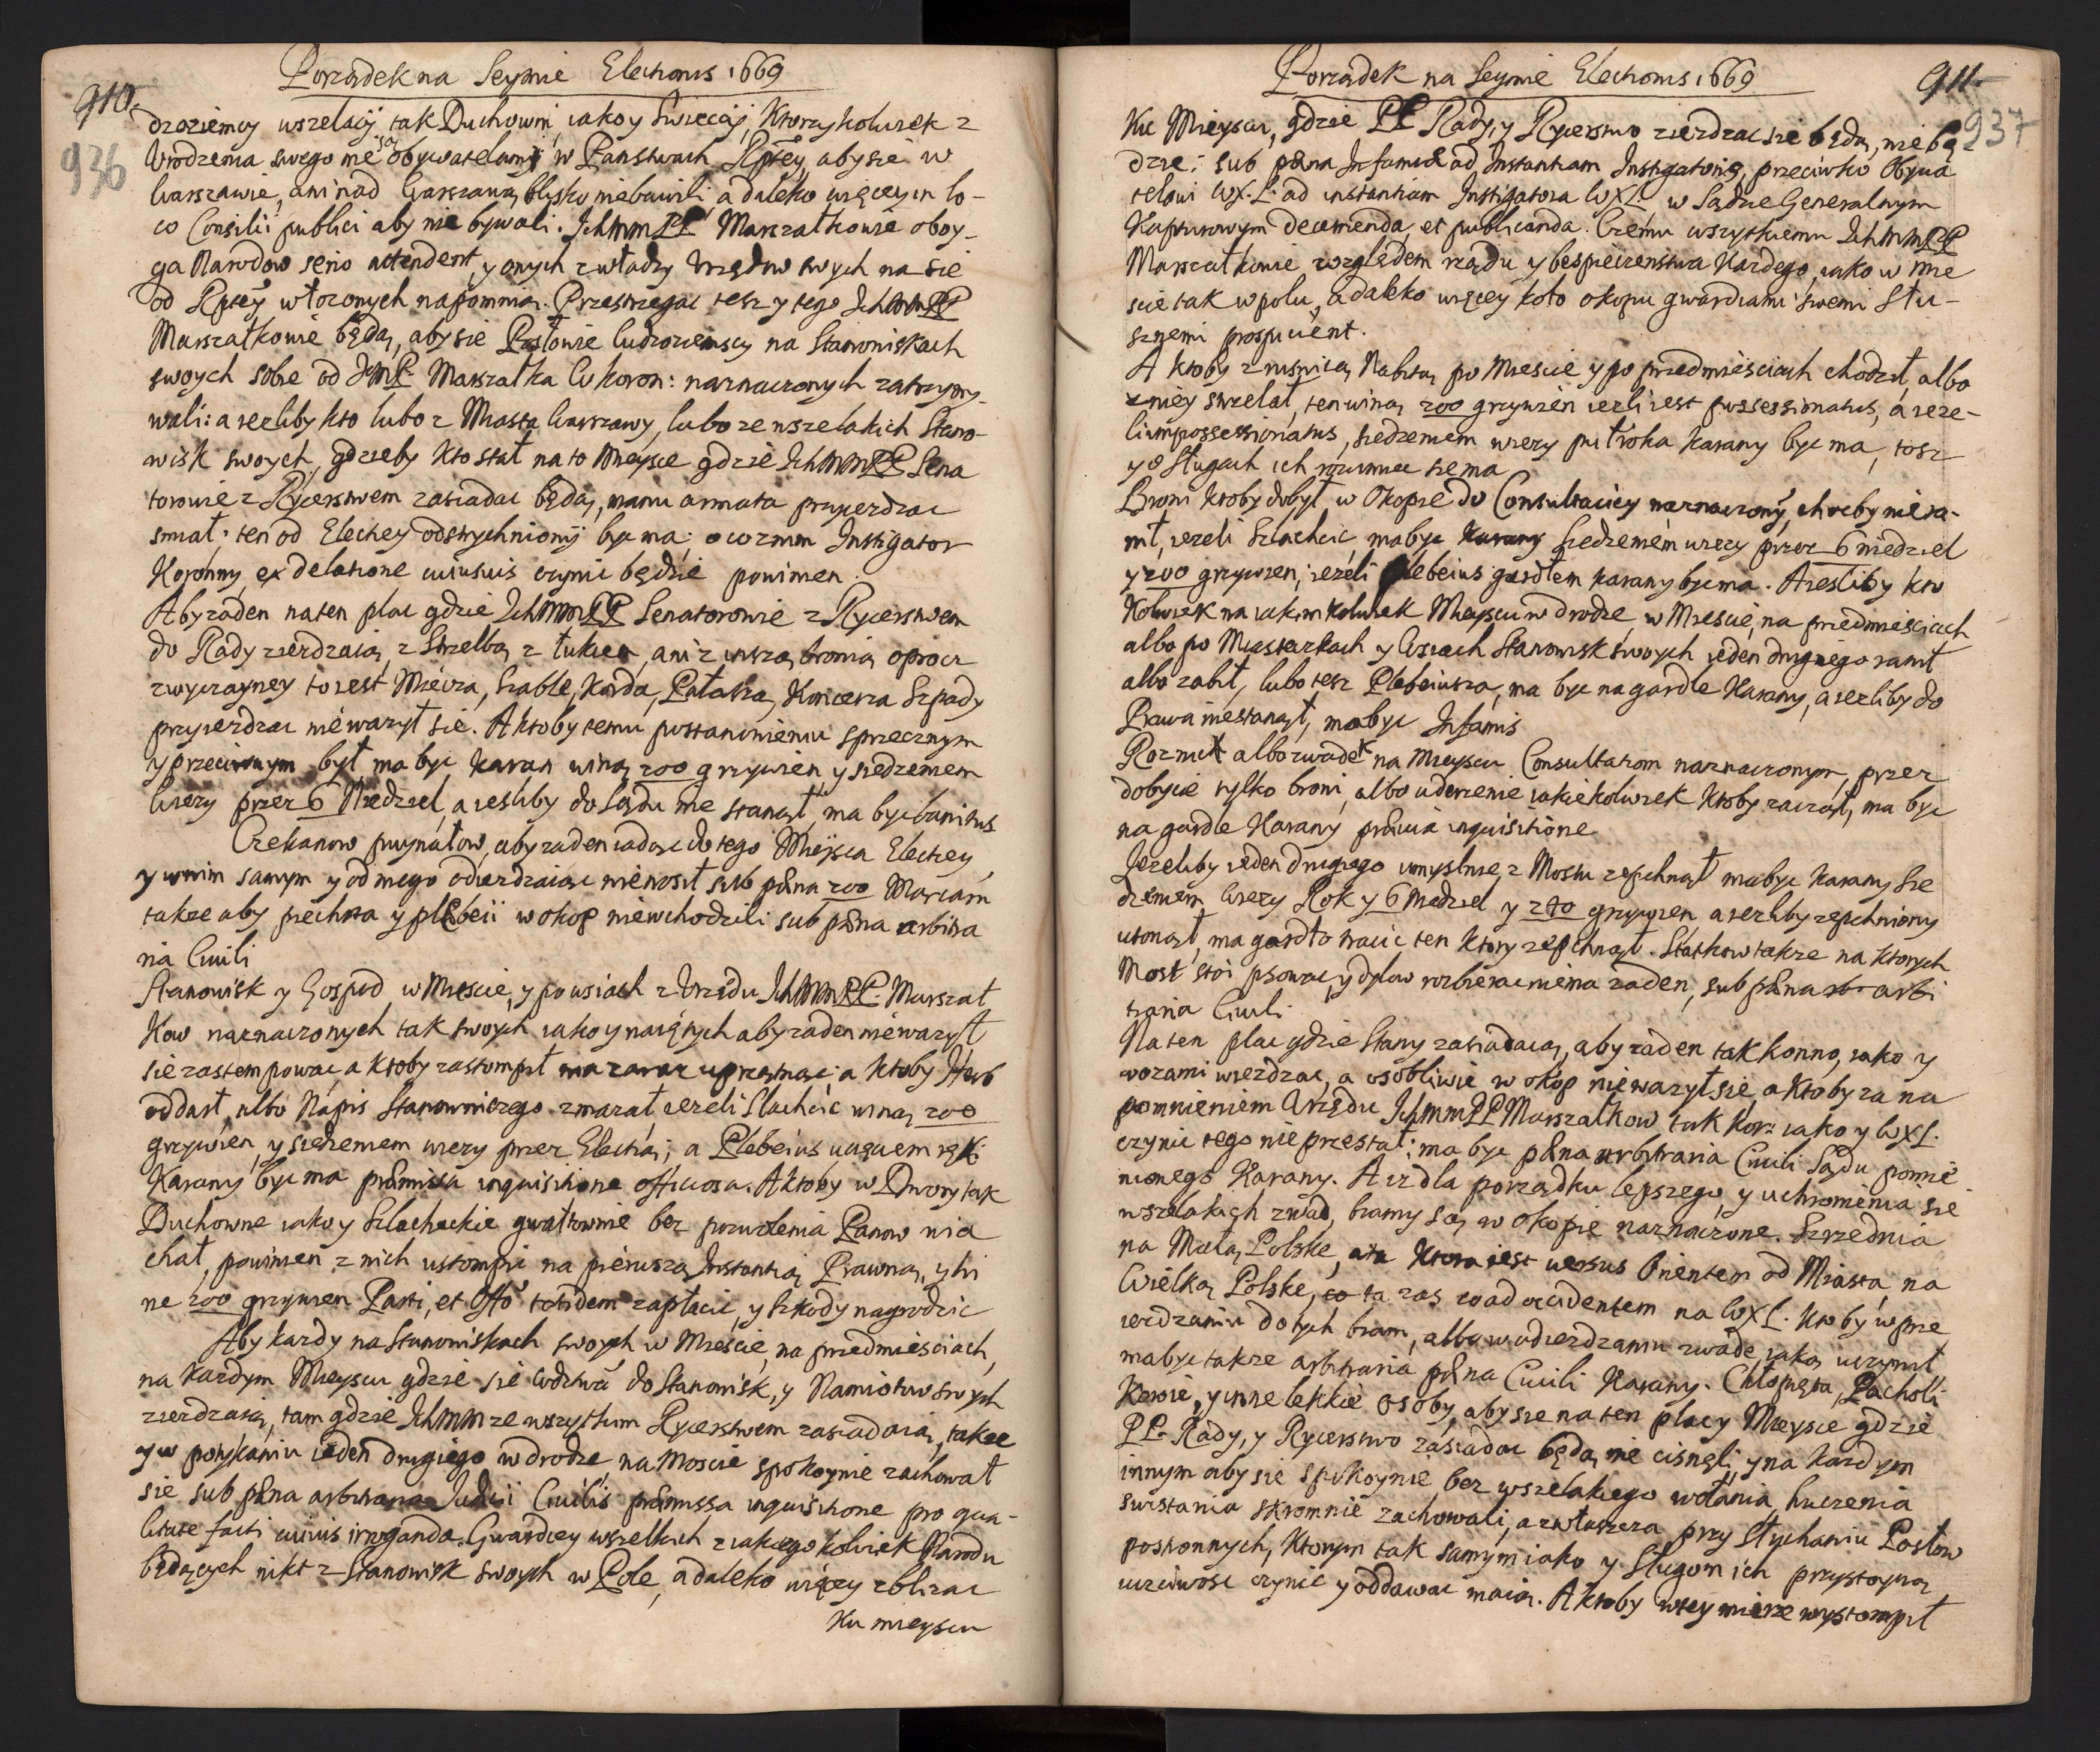 Porządek na Seymie Electionis 1669
910.
936
droziemcy wszelacy tak Duchowni iako y Swieccy, Ktorzykolwiek z
Urodzenia swego nie są obywatelami w Panstwach Rptey, aby sie w
Warszawie, ani nad Warszawą blisko niebawili a daleko więcey in lo-
co Consilii publici aby nie bywali. Ichmm PP Marszałkowie oboy-
ga Narodow serio attendent, y onych z władzy Urzędow swych na sie
od Rptey włozonych napomnią. Przestrzegac tesz y tego Ichmm PP
Marszałkowie będą, aby sie Posłowie Cudzoziemscy na Stanowiskach
swoych sobie od JmP. Marszałka W koron: naznaczonych zatrzymy-
wali: a iezliby kto lubo z Miasta Warszawy, lubo ze wszelakich Stano-
wisk swoych, gdzieby kto stał na to Mieysce gdzie Ichmm PP Sena
torowie z Rycerstwem zasiadac będą, manu armata przyiezdzac
smiał, ten od Elechey odstrychniony byc ma; o co zmm Instigator
Koronny, ex delatione cuiusvis czynic będzie powinien.
Aby zaden na ten plac gdzie Ichmm PP Senatorowie z Rycerstwem
do Rady ziezdzaią, z Strzelbą z łukiem, ani z inszą bronią oprocz
zwyczayney to iest Miecza, Szable, Korda, Pałasza, Koncerza Szpady
przyiezdzac niewazył sie. A ktoby temu postanowieniu sprzecznym
y przeciwnym był, ma byc karan winą 200 grzywien y siedzeniem
Wiezy przez 6 Niedziel, a iesliby do Sądu nie stanął, ma byc banitus
Czekanow puynałow, aby zaden iadąc do tego Mieysca Elechey
y w nim samym y od niego odiezdzaiąc nienosił sub pæna 200 Marcarum
takze aby piechota y plebeii w okop niewchodzili sub pæna arbitra
ria Civili
Stanowisk y Gospod w Miescie, y po wsiach z Urzędu Ichmm PP. Marszał
kow naznaczonych tak swoych iako y naiętych aby zaden niewazył
sie zastempowac, a ktoby zastompił ma zaraz uprzątnąc; a ktoby Herb
oddarł, albo Napis Stanowniczego zmazał, iezeli Slachcic winą 200
grzywien, y siedzeniem wiezy przez Elechią; a Plebeius ucięciem ręki
Karany byc ma præmissa inquisitione officiosa. A ktoby w Dwory tak
Duchowne iako y Szlacheckie gwałtownie bez pozwolenia Panow wia
chał, powinien z nich ustompic na pierwszą Instantią Prawną, y wi
ne 200 grzywien Parti, et Offo totidem zapłacic, y Szkody nagrodzic
Aby kazdy na Stanowiskach swoych w Miescie, na przedmiesciach,
na kazdym Mieyscu gdzie sie do Stanowisk, y Namiotow swych
ziezdzaią, tam gdzie Ichmm ze wszytkim Rycerstwem zasiadaią, takze
y w potykaniu ieden drugiego w drodze, na Moscie spokoynie zachował
sie sub pæna arbitraria Judicii Civilis præmissa inquisitione pro qua-
litate facti cuivis irroganda. Gwardiey wszelkich z iakiegokolwiek Narodu
będących nikt z Stanowisk swoych w Pole, a daleko więcy zblizac
Ku mieyscu
Porządek na Seymie Electionis 1669
911.
937
Ku Mieyscu, gdzie PP Rady, y Rycerstwo ziezdzac sie będą, nie bę
dzie: sub pæna Infamiæ ad Instantiam Instigatoris, przeciwko Obywa
telowi WXL. ad instantiam Instigatora WXL. w Sądzie Generalnym
Kapturowym decernenda, et publicanda. Czemu wszytkiemu Ichmm PP
Marszałkowie względem rządu y bespieczenstwa Kazdego, iako w mie
scie tak w polu, a daleko więcey koło okopu gwardiami swemi Słu-
sznemi prospicient.
A ktoby z rusnicą Nabitą po Miescie y po przedmiesciach chodził, albo
z niey strzelał, ten winą 200 grzywien iezli iest possessionatus, a ieze-
li impossessionatus, siedzeniem wiezy puł roka karany byc ma, tosz
y o Sługach ich rozumiec sie ma
Broni ktoby dobył w Okopie do Consultaciey naznaczony, chocby niera-
nił, iezeli Szlachcic, ma byc karany siedzeniem wiezy przez 6 niedziel
y 200 grzywien; iezeli Plebeius gardłem karany byc ma. A iesliby kto
Kolwiek na iakimkolwiek Mieyscu w drodze, w Miescie, na przedmiesciach
albo po Miasteczkach y Wsiach Stanowisk swoych ieden drugiego ranił
albo zabił, lubo tesz Plebeiusza, ma byc na gardle Karany, a iezliby do
Prawa niestanął, ma byc Infamis
Rozruch albo zwadę na Mieyscu Consultatiom naznaczonym, przez
dobycie tylko broni, albo uderzenie iakiekolwiek ktoby zaczął, ma byc
na gardle Karany prævia inquisitione
Jezeliby ieden drugiego umyslnie z Mostu zepchnął ma byc karany Sie
dzeniem Wiezy Rok y 6 Niedziel y 200 grzywien, a iezliby zepchniony
utonął, ma gardło tracic ten ktory zepchnął. Statkow takze na ktorych
Most stoi psowac, y dylow rozbierac niema zaden, sub pæna arbi
traria Civili
Na ten plac gdzie Stany zasiadaią, aby zaden tak konno, iako y
wozami wiezdzac, a osobliwie w okop niewazył sie, a ktoby za na
pomnieniem Urzędu Ichmm PP Marszałkow tak Kor: iako y WXL.
czynic tego nie przestał; ma byc pæna arbitraria Civili Sądu pomie
nionego Karany. A iz dla porządku lepszego, y uchronienia sie
wszelakich zwad, bramy są w okopie naznaczone. Szrzednia
na Małą Polskę, ktora iest versus Orientem od Miasta, na
Wielką Polskę, ta zas ad occidentem na WXL. Ktoby w prze
iezdzaniu do tych bram, albo w odiezdzaniu zwadę iaką uczynił
ma byc takze arbitraria pæna Civili Karany. Chłopięta, Pacholi
Kowie, y inne lekkie osoby, aby sie na ten plac y Mieysce gdzie
PP. Rady, y Rycerstwo zasiadac będą nie cisnęli, y na kazdym
innym aby sie spokoynie bez wszelakiego wołania, huczenia
swistania skromnie zachowali, a zwłaszcza przy Słychaniu Posłow
postronnych, Ktorym tak samym iako y Sługom ich przystoyną
ucciwosc czynic y oddawac maią. A ktoby w tey mierze wystompił